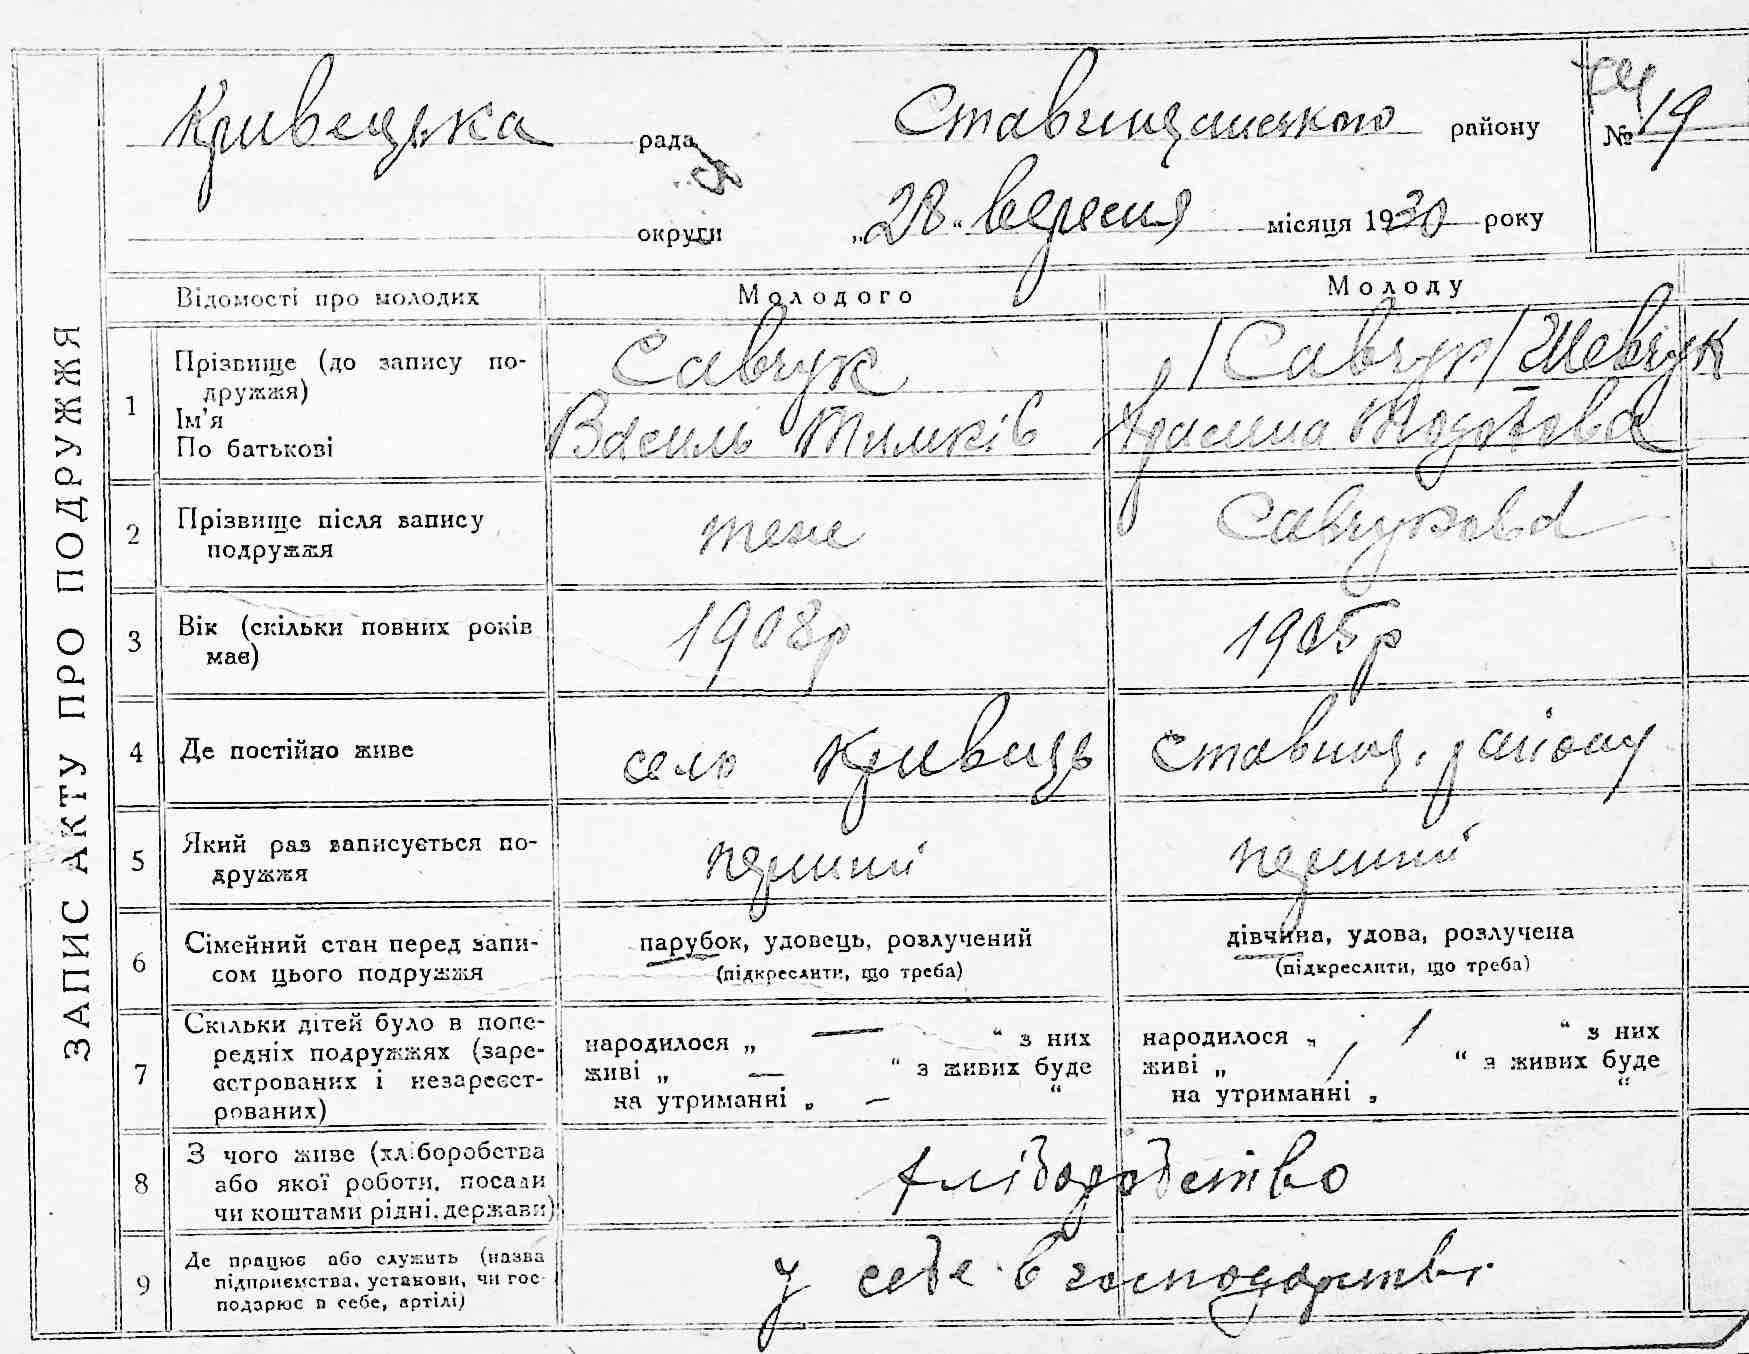 ЗАПИС АКТУ ПРО ПОДРУЖЖЯ
Кривецька рада Ставищанського району №19
округи „28“ вересня місяця 1930 року
Відомості про молодих Молодого Молоду
1 Прізвище (до запису по-
дружжя) Савчук /Савчук/ Шевчук
Ім'я
По батькові Василь Тимків
2 Прізвище після запису
подружжя теж Савчукова
3 Вік (скільки повних років
має) 1908р 1905р
4 Де постійно живе село Кривець Ставищ. району
5 Який раз записується по-
дружжя перший перший
6 Сімейний стан перед запи-
сом цього подружжя
парубок, удовець, розлучений
(підкреслити, що треба)
дівчина, удова, розлучена
(підкреслити, що треба)
7 Скільки дітей було в попе-
редніх подружжях (заре-
єстрованих і незареєст-
рованих)
народилося „ — “ з них
живі „ — “ з живих буде
на утриманні „ — “
народилося „ “ з них
живі „ “ з живих буде
на утриманні „ “
8 З чого живе (хліборобства
або якої роботи, посади
чи коштами рідні, держави)
хліборобство
9 Де працює або служить (назва
підприємства, установи, чи гос-
подарює в себе, артілі)
у себе в господарстві